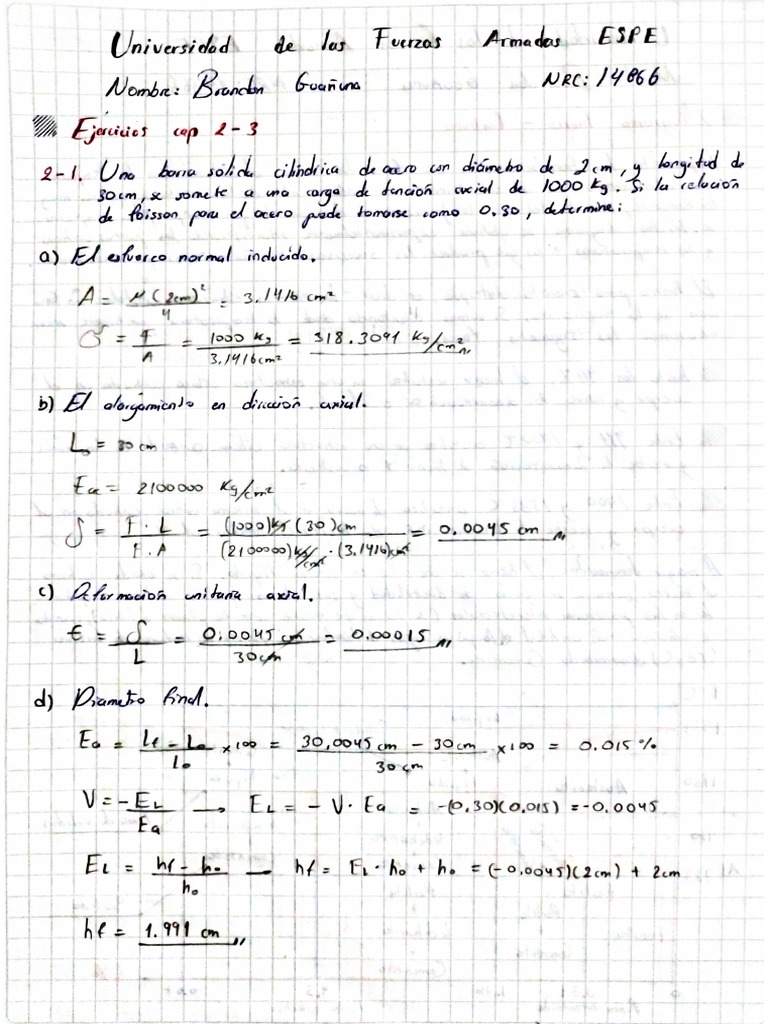 Universidad de las Fuerzas Armadas ESPE
Nombre: Brandon Guañuna NRC: 14866
Ejercicios cap 2-3
2-1. Una barra sólida cilíndrica de acero con diámetro de 2cm, y longitud de
30cm, se somete a una carga de tención axial de 1000 kg. Si la relación
de Poisson para el acero puede tomarse como 0.30, determine:
a) El esfuerzo normal inducido.
A = π (2cm)² / 4 = 3.1416 cm²
σ = F / A = 1000 kg / 3.1416cm² = 318.3091 kg/cm²
b) El alargamiento en dirección axial.
L₀ = 30 cm
Eac = 2100000 kg/cm²
δ = F · L / E · A = (1000)kg (30)cm / (2100000)kg/cm² · (3.1416)cm² = 0.0045 cm
c) Deformación unitaria axial.
ε = δ / L = 0.0045 cm / 30cm = 0.00015
d) Diametro final.
Ea = Lf - L₀ / L₀ x100 = 30,0045 cm - 30cm / 30 cm x100 = 0.015 %
V = -EL / Ea → EL = - V · Ea = -(0.30)(0.015) = -0.0045
EL = hf - h₀ / h₀ — hf = EL · h₀ + h₀ = (-0,0045)(2cm) + 2cm
hf = 1.991 cm